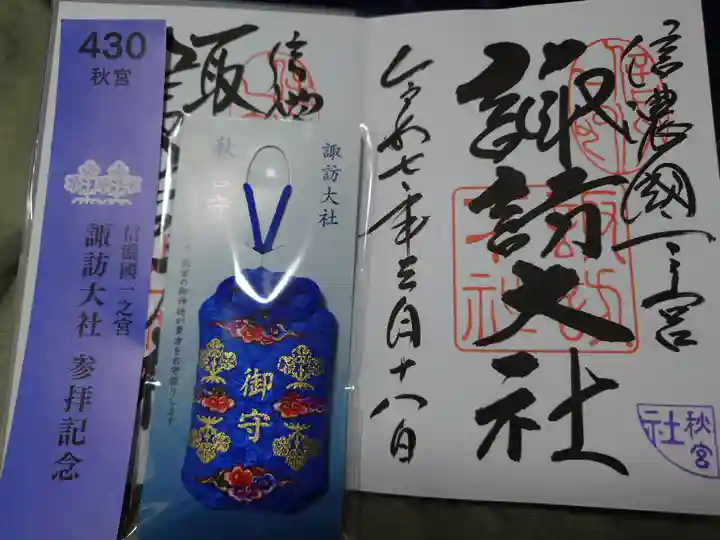 信濃國一之宮
諏訪大社
令和七年三月十八日
秋宮
社
諏訪大社
秋宮守
御守
430
秋宮
信濃國一之宮
諏訪大社 参拝記念